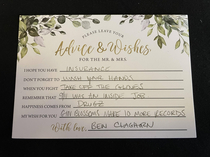 PLEASE LEAVE YOUR
Advice & Wishes
FOR THE MR & MRS
I HOPE YOU HAVE INSURANCE
DON'T FORGET TO WASH YOUR HANDS
WHEN YOU FIGHT TAKE OFF THE GLOVES
REMEMBER THAT 9/11 WAS AN INSIDE JOB
HAPPINESS COMES FROM DRUGS
MY WISH FOR YOU GIN BLOSSOMS MAKE 10 MORE RECORDS
With love, BEN CLAGHORN